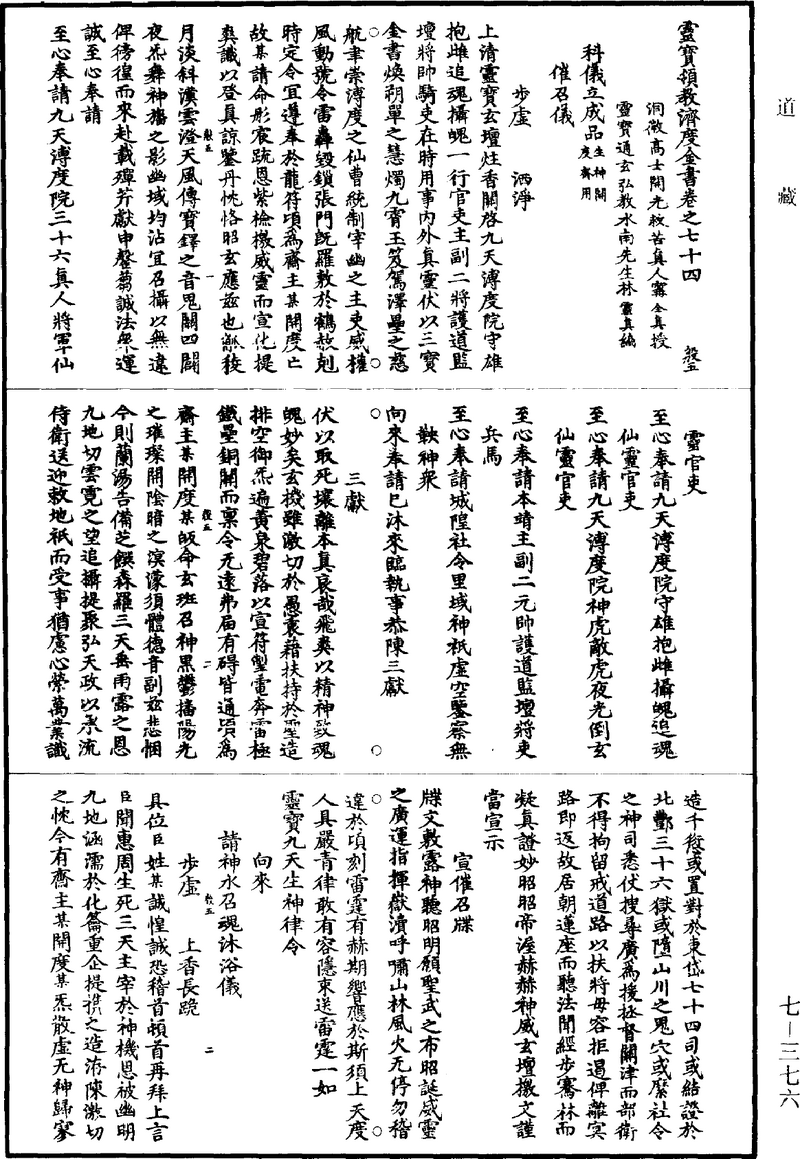 道藏
靈寶領教濟度金書卷之七十四 殷五
洞微高士開光救苦真人甯全真授
靈寶通玄弘教水南先生林靈真編
科儀立成品生神開度齋用
催召儀
步虛 洒淨
上清靈寶玄壇炷香關啓九天溥度院守雄
抱雌追魂攝魄一行官吏主副二將護道監
壇將帥騎吏在時用事內外真靈伏以三寶
金書煥朔單之慧燭九霄玉笈駕澤壘之慈
航聿崇溥度之仙曹統制宰幽之主吏威權
風動號令雷轟毀鎖張門旣羅敷於鶴慤剋
時定令宜遵奉於龍符頃為齋主某開度亡
故某請命彤宸䟽恩紫檢檄威靈而宣化提
爽識以登真諒鑒丹忱恪昭玄應茲也觚稜
月淡斜漢雲澄天風傳寶鐸之音鬼關四闢
夜炁舞神旛之影幽域均沾宜召攝以無違
俾徬徨而來赴載殫芹獻申罄蕪誠法衆運
誠至心奉請
至心奉請九天溥度院三十六真人將軍仙
靈官吏
至心奉請九天溥度院守雄抱雌攝魄追魂
仙靈官吏
至心奉請九天溥度院神虎敵虎夜光倒玄
仙靈官吏
至心奉請本靖主副二元帥護道監壇將吏
兵馬
至心奉請城隍社令里域神祇虛空鑒察無
鞅神衆
向來奉請已沐來臨執事恭陳三獻
三獻
伏以取死壞離本真哀哉飛爽以精神致魂
魄妙矣玄機雖激切於愚衷藉扶持於聖造
排空御炁遍黃泉碧落以宣符掣電奔雷極
鐵壘銅關而稟令无遠弗屆有礙皆通頃為
齋主某開度某皈命玄班召神黑鬱播陽光
之璀璨開陰暗之溟濛須體德音副茲悲悃
今則蘭湯告備芝饌森羅三天垂雨露之恩
九地切雲霓之望追攝提聚弘天政以承流
侍衛送迎敕地祇而受事猶慮心縈萬業識
造千愆或置對於東岱七十四司或結證於
北酆三十六獄或墮山川之鬼穴或縻社令
之神司悉伏搜尋廣為援拯督關津而部衛
不得拘留戒道路以扶將毋容拒遏俾離冥
路即返故居朝蓮座而聽法聞經步騫林而
凝真證妙昭昭帝渥赫赫神威玄壇檄文謹
當宣示
宣催召牒
牒文敷露神聽昭明願聖武之布昭誕威靈
之廣運指揮嶽瀆呼嘯山林風火无停勿稽
違於頃刻雷霆有赫期響應於斯須上天度
人具嚴青律敢有容隱束送雷霆一如
靈寶九天生神律令
向來
請神水召魂沐浴儀
步虛 上香長跪
具位臣姓某誠惶誠恐稽首頓首再拜上言
臣聞惠周生死三天主宰於神機恩被幽明
九地涵濡於化籥重企提携之造洊陳激切
之忱今有齋主某開度某炁散虛无神歸寥
殷五 一
殷五 二
殷五 二
七—三七六